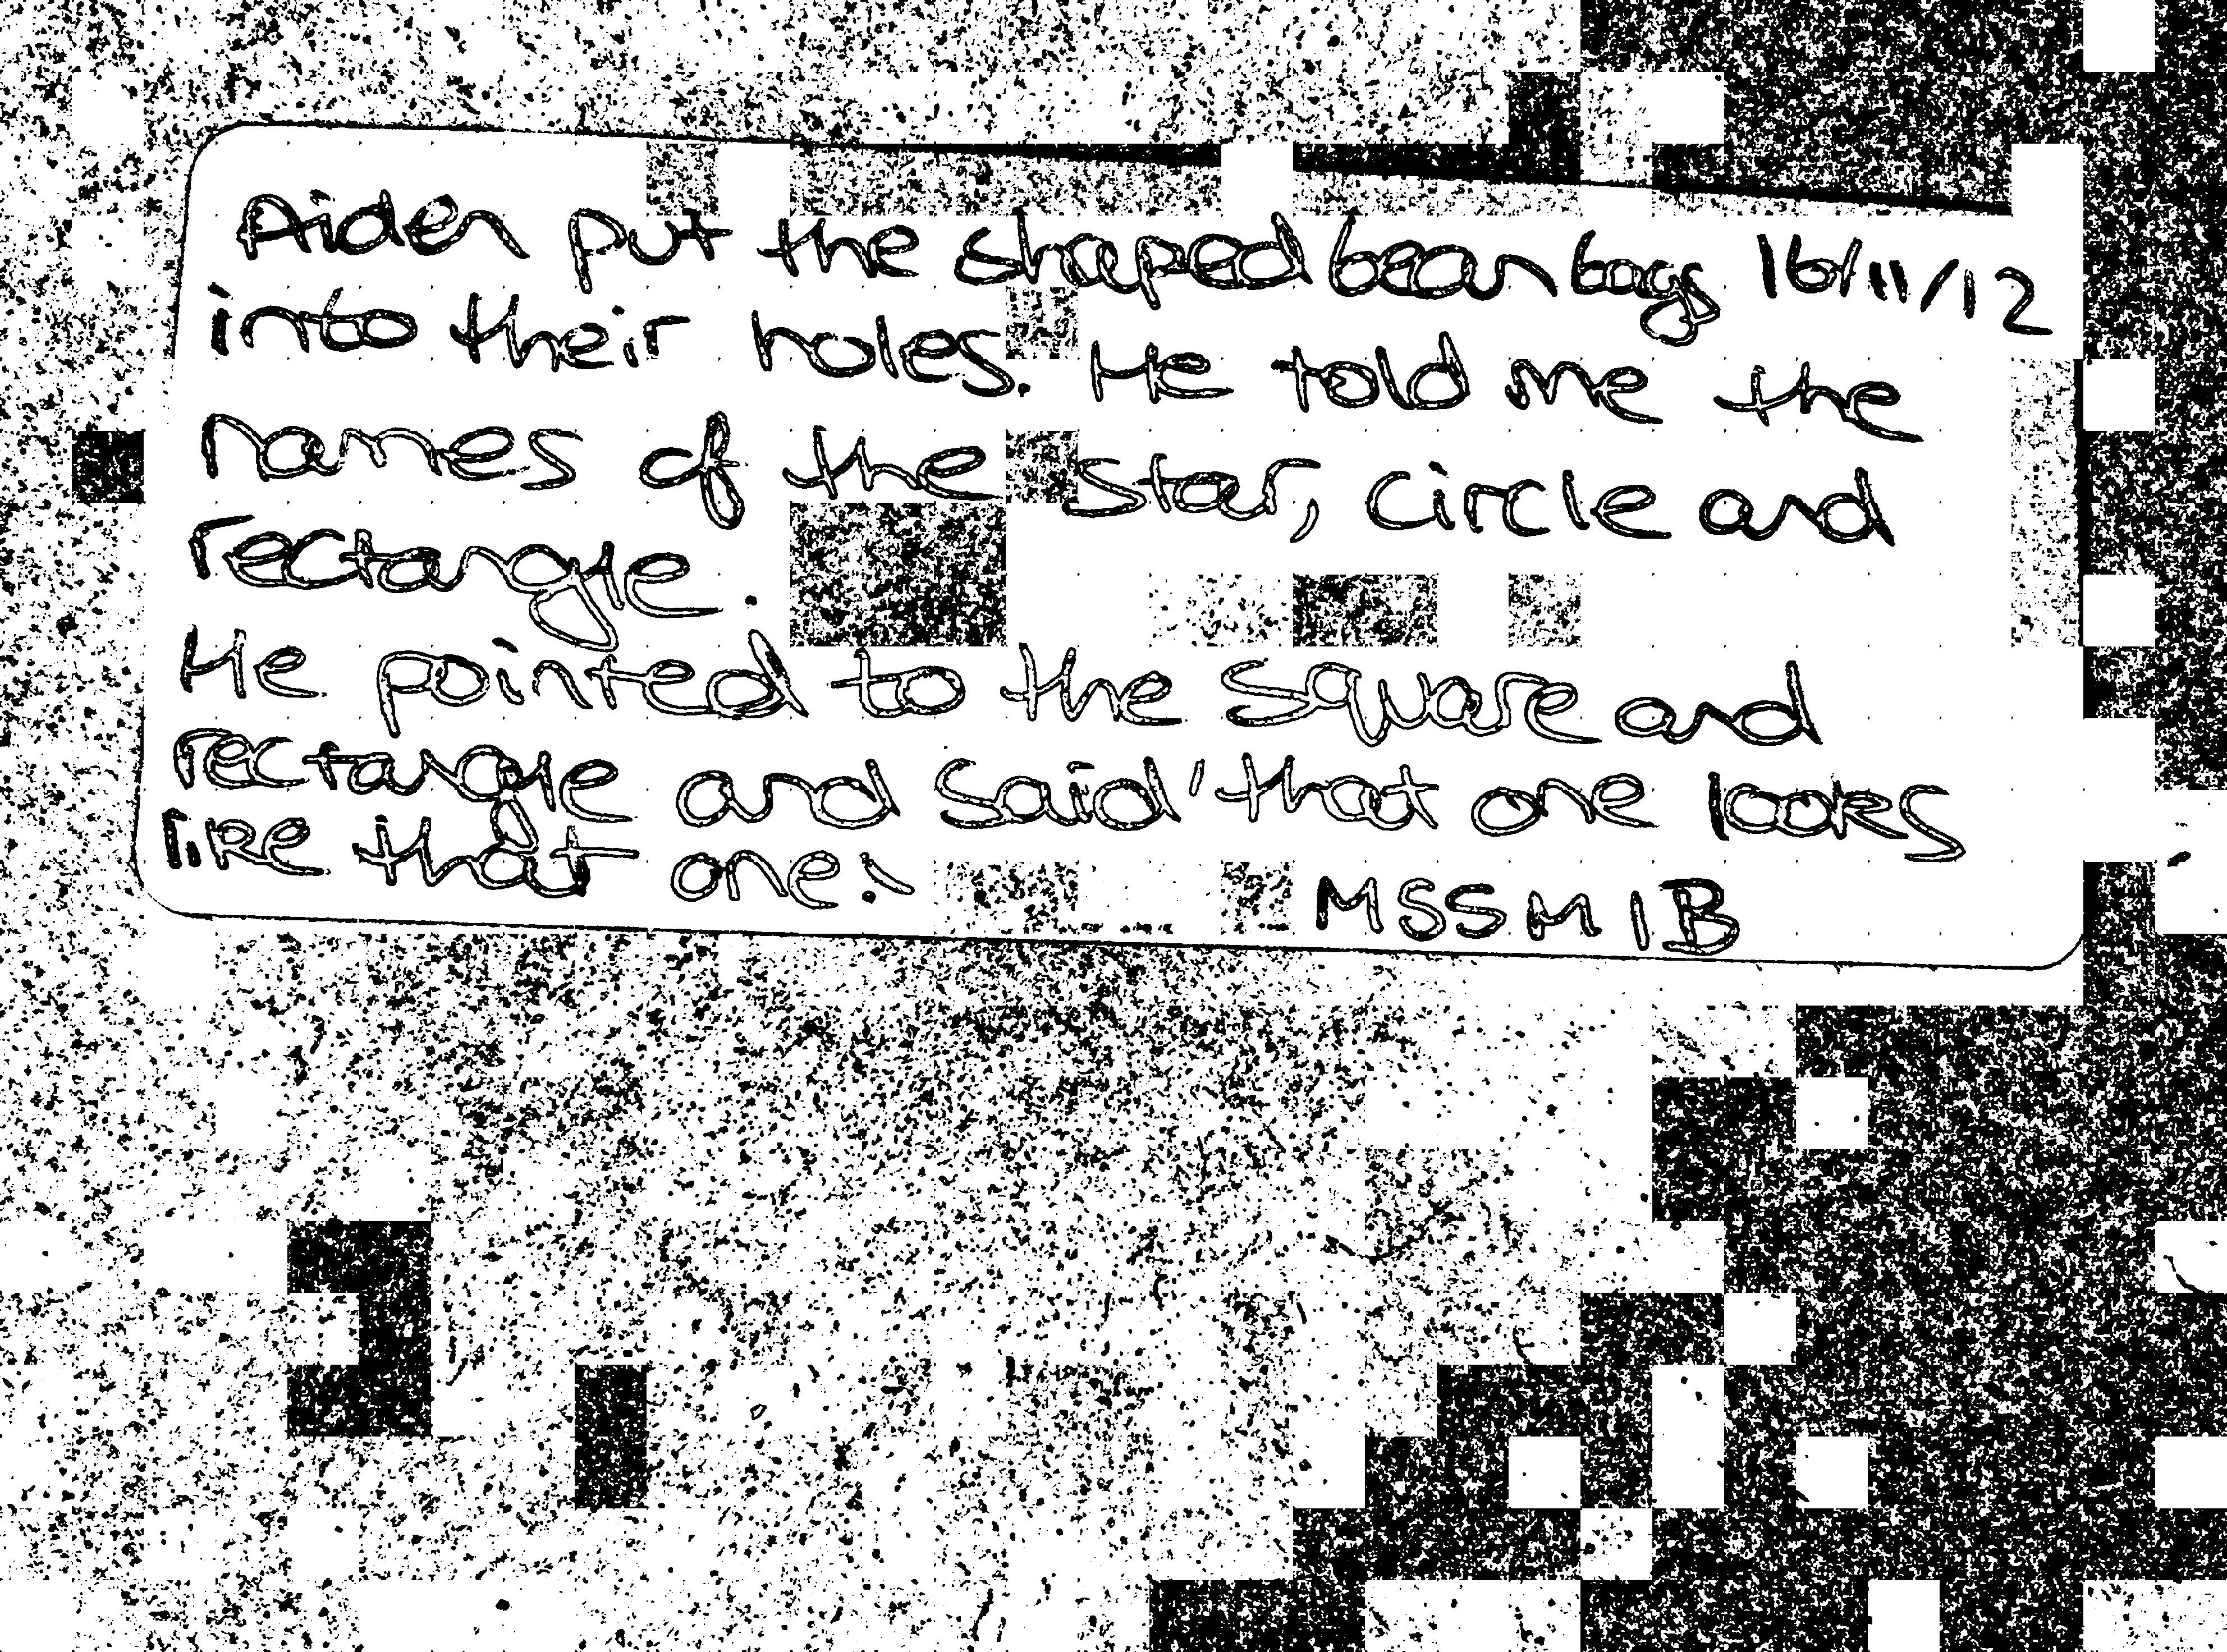 Aiden put the shaped bean bags 16/11/12
into their holes. He told me the
names of the star, circle and
rectangle.
He pointed to the square and
rectangle and said 'that one looks
like that one.'
MSSM 1B